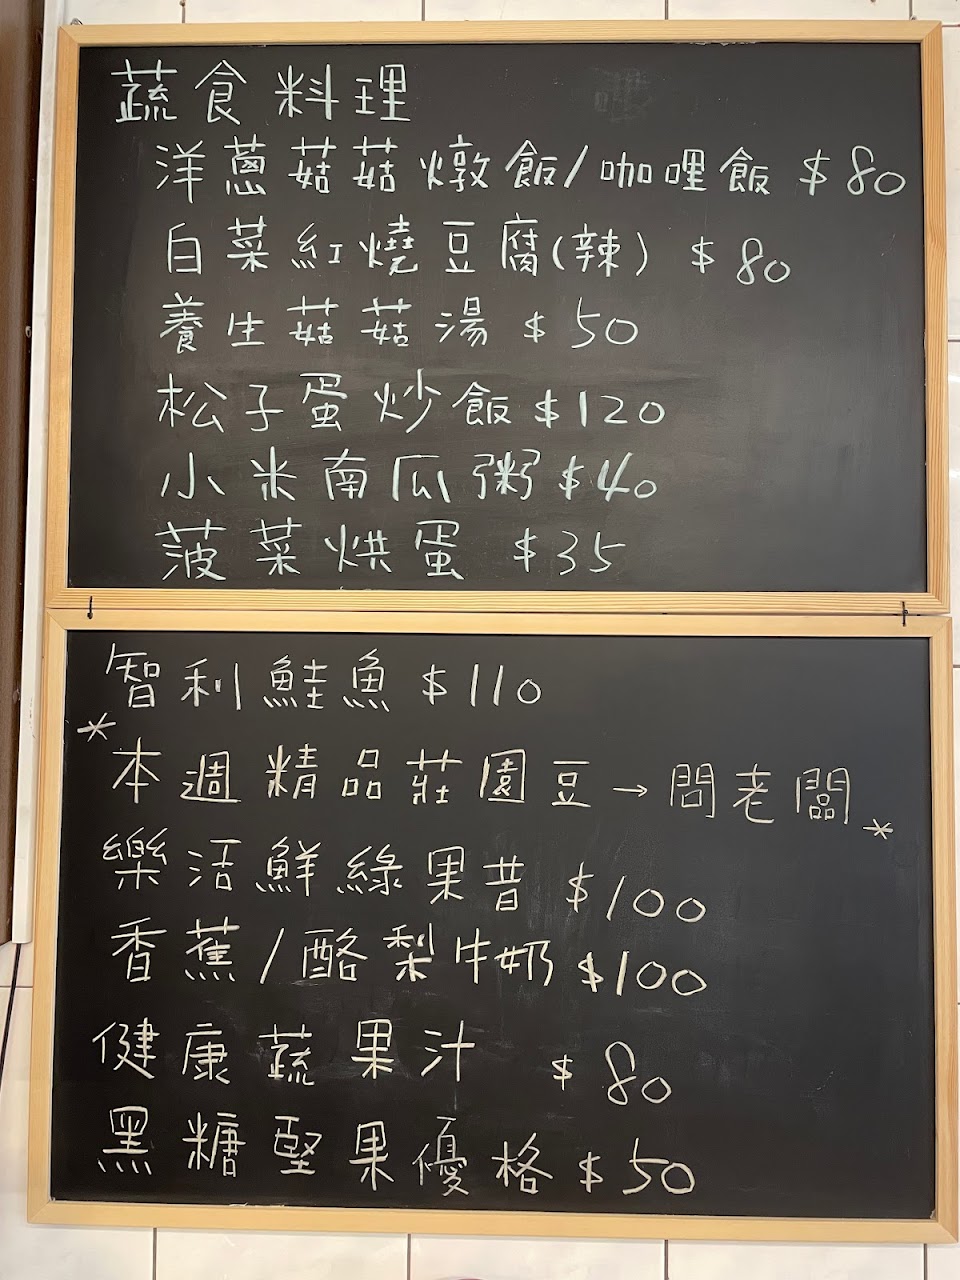 蔬食料理
洋蔥菇菇燉飯/咖哩飯 $80
白菜紅燒豆腐(辣) $80
養生菇菇湯 $50
松子蛋炒飯 $120
小米南瓜粥 $40
菠菜烘蛋 $35
智利鮭魚 $110
*本週精品莊園豆→問老闆*
樂活鮮綠果昔 $100
香蕉/酪梨牛奶 $100
健康蔬果汁 $80
黑糖堅果優格 $50